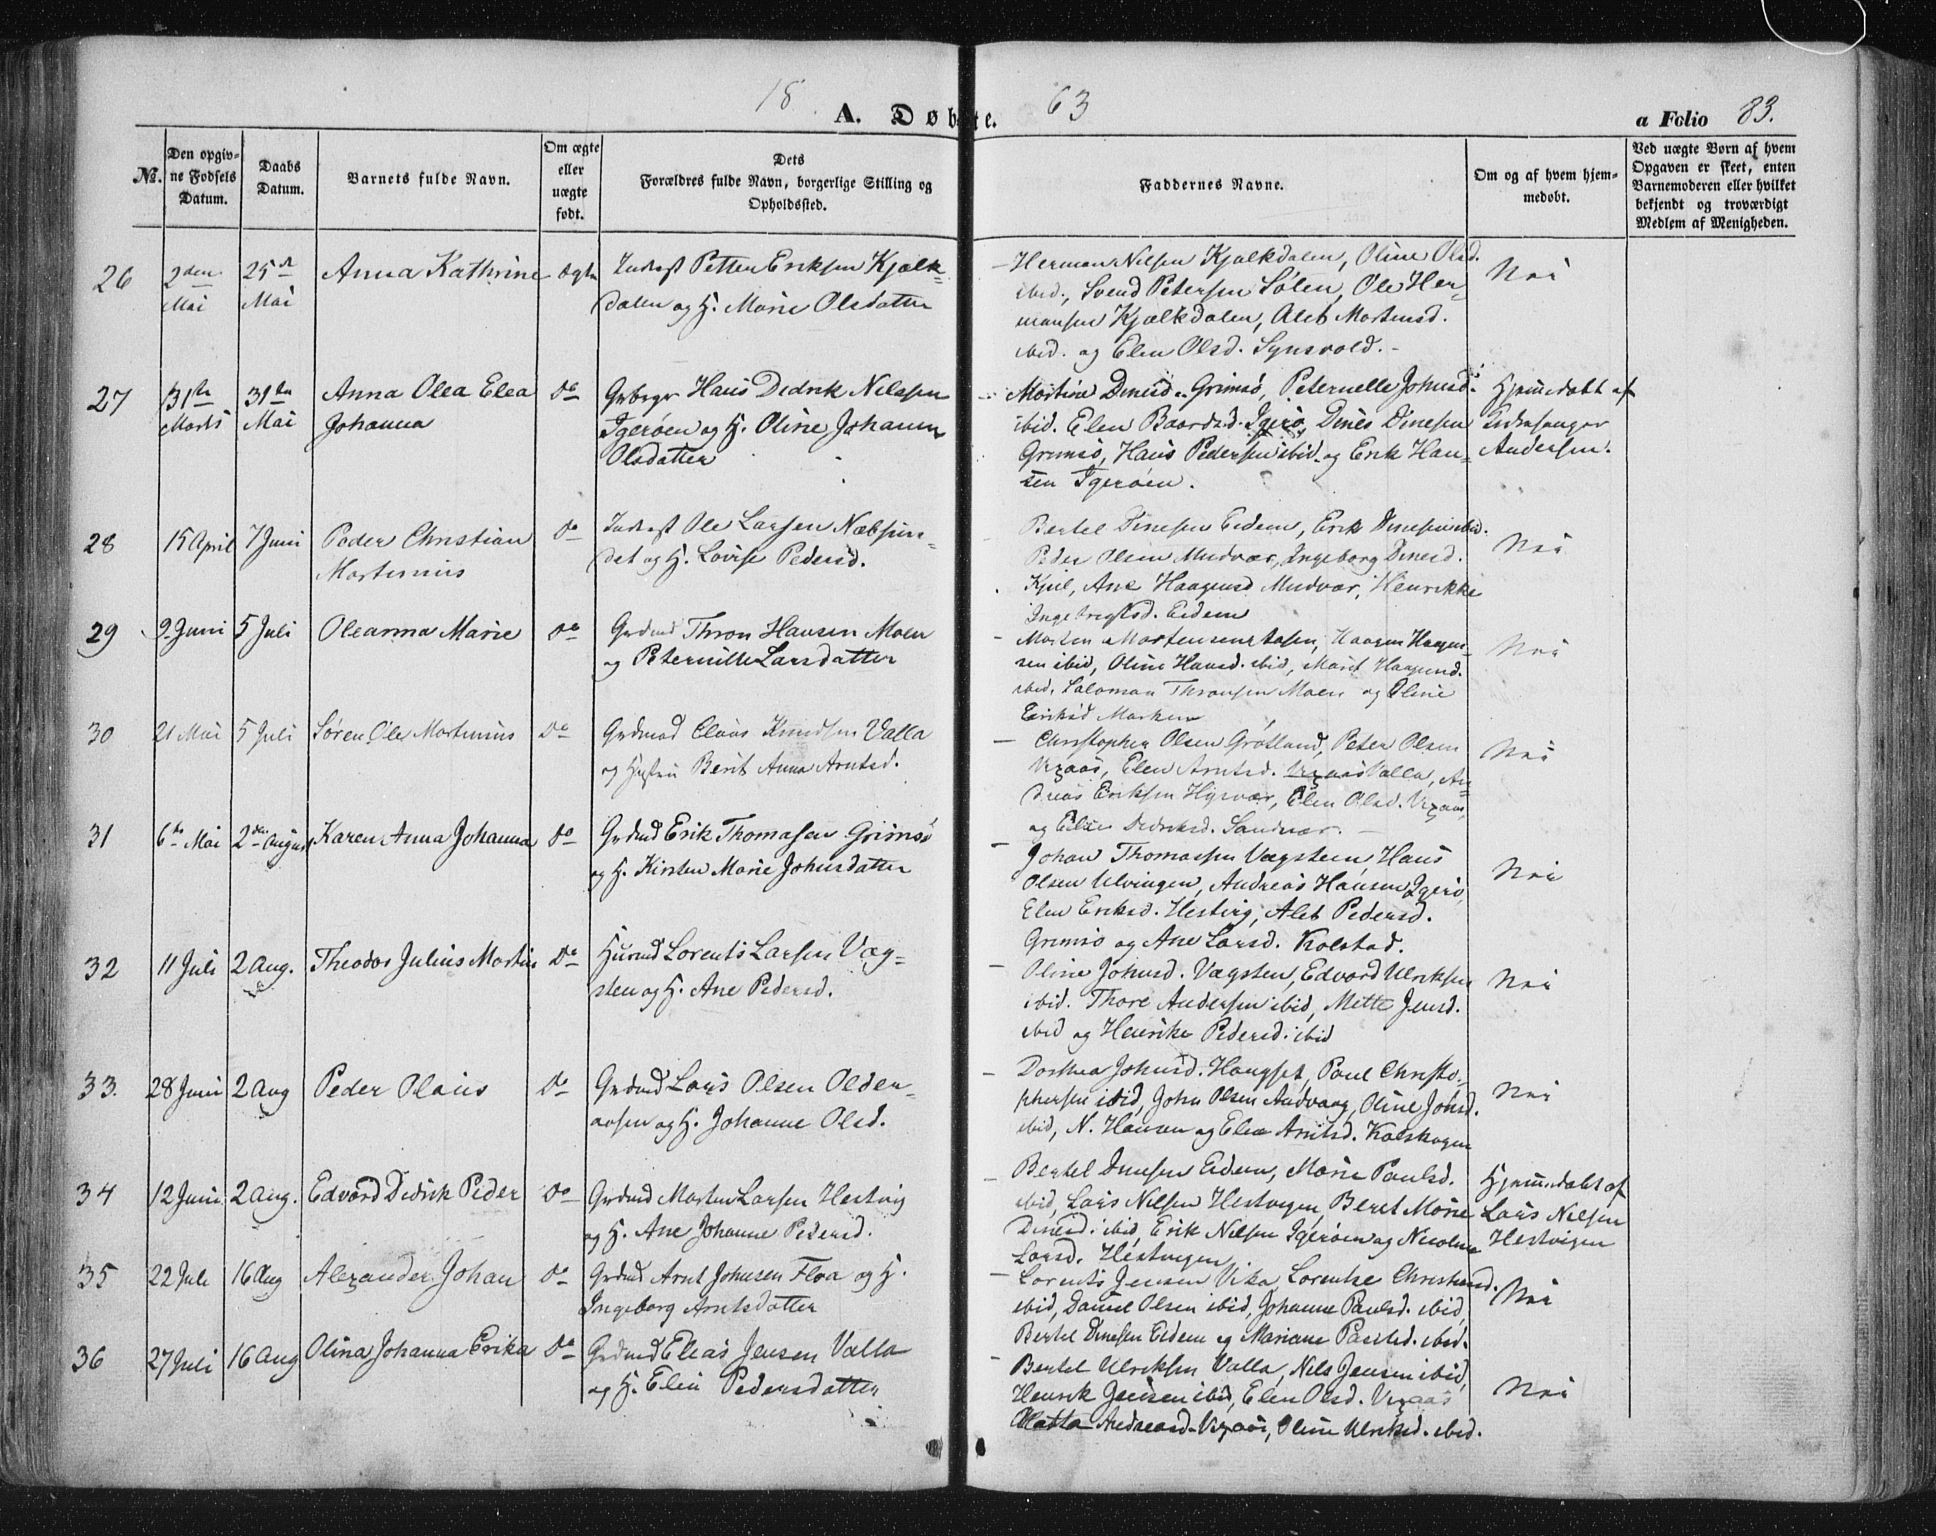 18 63
A. Døbte.
a Folio 83.
No.
Den opgiv-
ne Fødsels
Datum.
Daabs
Datum.
Barnets fulde Navn.
Om ægte
eller
uægte
født.
Dets
Forældres fulde Navn, borgerlige Stilling og
Opholdssted.
Faddernes Navne.
Om og af hvem hjem-
medøbt.
Ved uægte Børn af hvem
Opgaven er skeet, enten
Barnemoderen eller hvilket
bekjendt og troværdigt
Medlem af Menigheden.
26
2den
Mai
25de
Mai
Anna Kathrine
ægte
Inderst Petter Eriksen Kjælk-
dalen og H. Marie Olsdatter
Herman Nilsen Kjælkdalen, Oline Olsd.
ibid., Svend Petersen Sølen, Ole Her-
mansen Kjælkdalen, Alet Mortensd.
ibid. og Elen Olsd. Synsvold.
Nei
27
31te
Marts
31te
Mai
Anna Olea Elea
Johanna
Do
Hans Didrik Nilsen
Igerøen og H. Oline Johanne
Olsdatter
Dinesd. Grimsø, Peternelle Johnsd.
ibid. Elen Baardsd. Igerø, Dines Dinesen
Grimsø, Hans Pedersen ibid. og Erik Han-
sen Igerøen.
Hjemmedøbt af
Kirkesanger
Andersen.
28
15 April
7 Juni
Peder Christian
Martinus
Do
Inderst Ole Larsen Næbsun-
det og H. Lovise Pedersd.
Bertel Dinesen Eidem, Erik Dinesen ibid.
Peder Olsen Mudvær, Ingeborg Dinesd.
Kjul, Ane Haagensd Mudvær, Henrikke
Ingebrigtsd. Eidem
Nei
29
9 Juni
5 Juli
Oleanna Marie
Do
Grdmd Thron Hansen Moen
og Peternille Larsdatter
Morten Mortensen, Haagen Haagen-
sen ibid, Oline Hansd. ibid, Marit Haagensd.
ibid. Salomon Thronsen Moen og Oline
Eriksd Marken
Nei
30
21 Mai
5 Juli
Søren Ole Martinus
Do
Grdmd Claus Knudsen Valla
og Hustru Berit Anna Arntsd.
Christopher Olsen Grøtland, Peter Olsen
Vexaas, Elen Arntsd. Valla, An-
dreas Eriksen Hysvær, Elen Olsd. Vexaas,
og Didriksd. Sandvær.
Nei
31
6te Mai
2den August
Karen Anna Johanna
Do
Grdmd Erik Thomasen Grimsø
og H. Kirsten Marie Johnsdatter
Johan Thomassen Vægsten Hans
Olsen Ulvingen, Andreas Hansen Igerø,
Elen Eriksd. Hestvig, Alet Pedersd.
Grimsø og Ane Larsd. Kolstad.
Nei
32
11 Juli
2 Aug.
Theodor Julius Martin
Do
Husmd Lorents Larsen Væg-
sten og H. Ane Pedersd.
Oline Johnsd. Vægsten, Edvard Ulriksen
ibid. Thore Andersen ibid, Mette Jensd.
ibid og Henrike Pedersd. ibid
Nei
33.
28 Juni
2 Aug
Peder Olaus
Do
Grdmd Lars Olsen Older-
aasen og H. Johanne Olsd.
Dorthea Johnsd. Haugset, Paul Christo-
phersen ibid, John Olsen Andvaag, Oline Johnsd.
ibid, N. Hansen og Elen Arntsd. Kolskogen
Nei
34
12 Juni
2 Aug.
Edvard Didrik Peder
Do
Grdmd Morten Larsen Hestvig
og H. Ane Johanne Pedersd.
Bertel Dinesen Eidem, Marie Paulsd.
ibid, Lars Nilsen Hestvigen, Beret Marie
Dinesd. ibid, Erik Nilsen Igerøen og Nicoline
Larsd. Hestvigen
Hjemmedøbt af
Lars Nilsen
Hestvigen
35
22 Juli
16 Aug
Alexander Johan
Do
Grdmd Arnt Johnsen Floa og H.
Ingeborg Arntsdatter
Lorents Jensen Vika, Lorentse Christensd.
ibid, Daniel Olsen ibid, Johanne Paulsd. ibid,
Bertel Dinesen Eidem og Mariane Paulsd. ibid.
Nei
36
27 Juli
16 Aug
Olina Johanna Erika
Do
Grdmd Elias Jensen Valla
og H. Elen Pedersdatter
Bertel Ulriksen Valla, Nils Jensen ibid,
Henrik Jensen ibid, Elen Olsd. Vexaas
Andreasd. Vexaas, Oline Ulriksd. ibid.
Nei